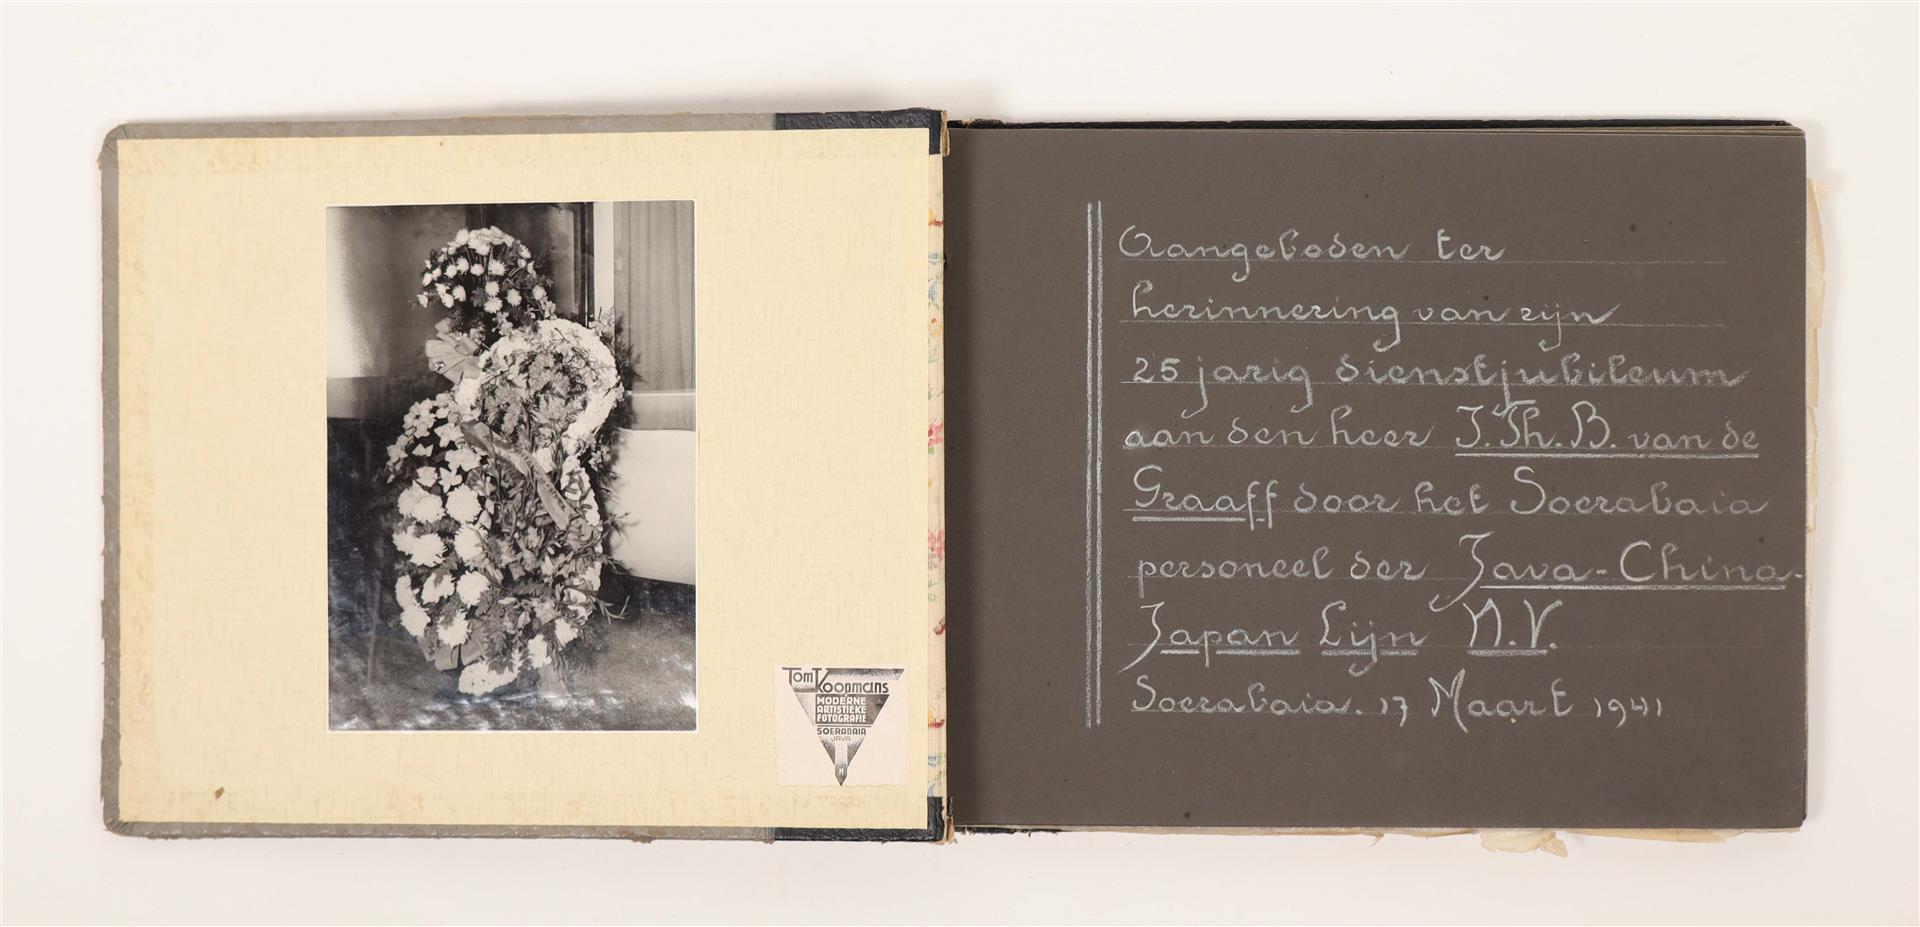 Tom Koopmans
MODERNE
ARTISTIEKE
FOTOGRAFIE
SOERABAIA
JAVA
Aangeboden ter
herinnering van zijn
25 jarig dienstjubileum
aan den heer J.Th.B. van de
Graaff door het Soerabaia
personeel der Java-China-
Japan Lijn N.V.
Soerabaia. 17 Maart 1941